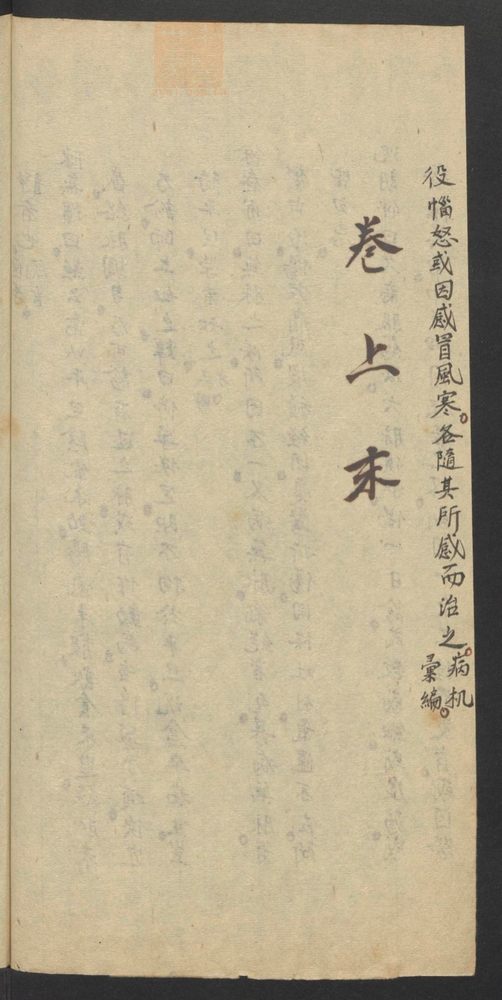 役惱怒或因感冒風寒。各隨其所感而治之。病机
彙編。
卷上末